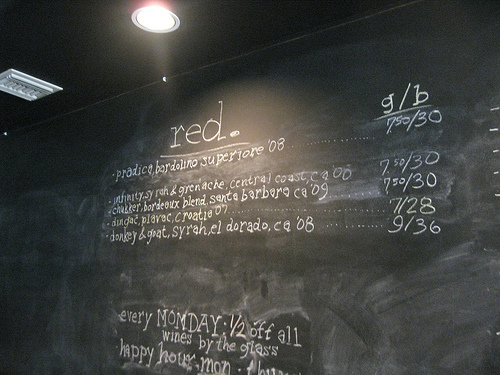 g/b
red.
- pradica, bardolino superiore '08 .......... 7⁵⁰/30
- infinity, syrah & grenache, central coast, ca '00 7⁵⁰/30
- chukker, bordeaux blend, santa barbara ca '09 7⁵⁰/30
- dingač, plavac, croatia '07 .......... 7/28
- donkey & goat, syrah, el dorado, ca '08 .......... 9/36
every MONDAY: 1/2 off all
wines by the glass
happy hour mon